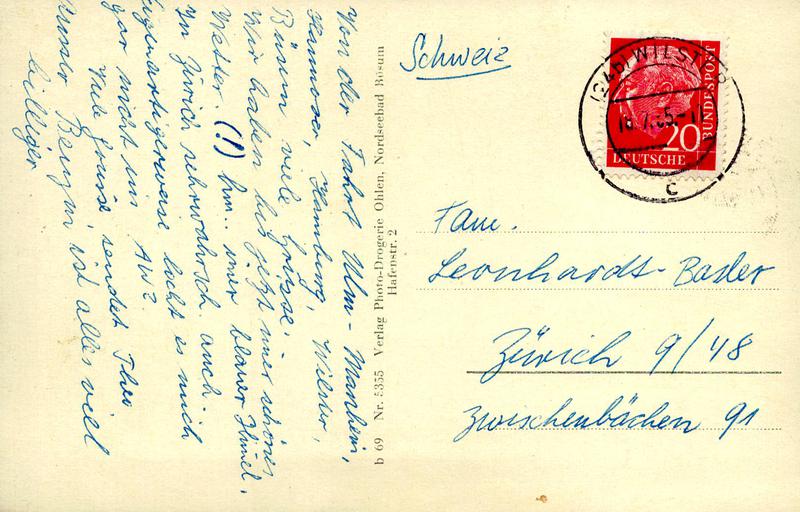 Von der Fahrt Ulm - Manheim,
Hannover, Hamburg, Wilster,
Büsum viele Grüsse.
Wir haben bis jetzt imer schönes
Wetter. (!) hm.. imer blauer Himel.
In Zürich sehrwahrsch. auch.
Eigenartigerweise lockt es mich
gar nicht ins AW?
Viele Grüsse, sendet Theo
Benzin ist alles viel
billiger
b 69 Nr. 5355 Verlag Photo-Drogerie Ohlen, Nordseebad Büsum
Hafenstr. 2
Schweiz
(24b) WILSTER
18.7.55.-11
c
20
DEUTSCHE
BUNDESPOST
Fam.
Leonhardt-Basler
Zürich 9/48
Zwischenbächen 91